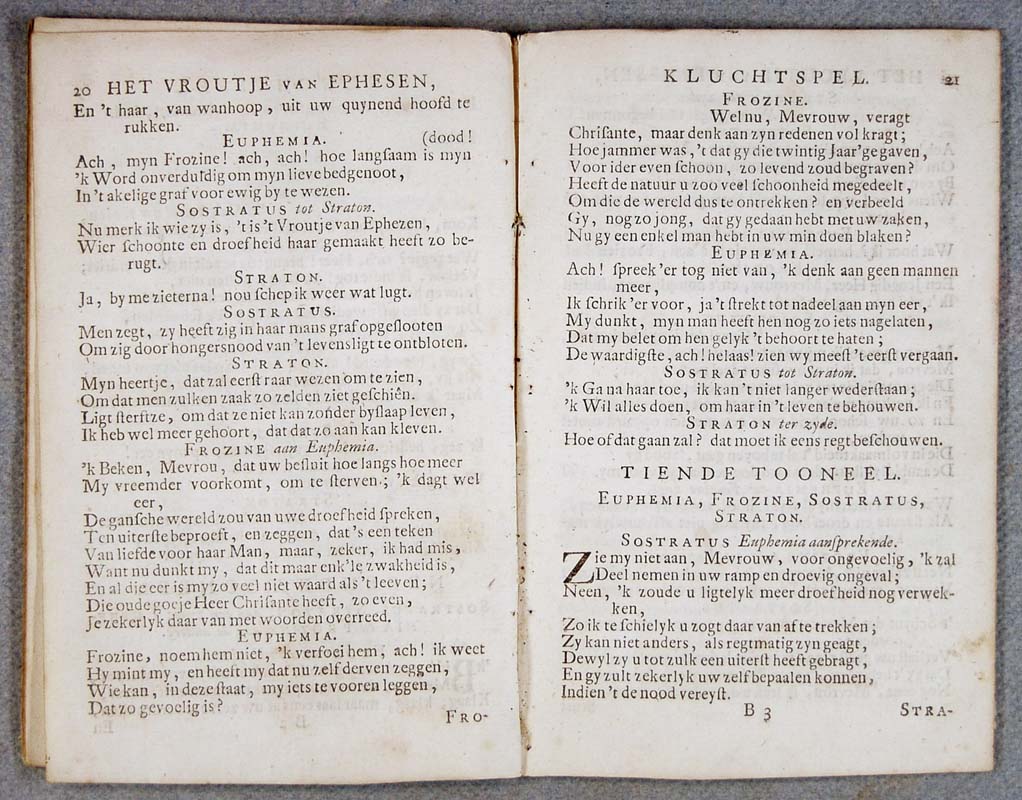 20 HET VROUTJE VAN EPHESEN,
En 't haar, van wanhoop, uit uw quynend hoofd te
rukken.
EUPHEMIA. (dood!
Ach, myn Frozine! ach, ach! hoe langſaam is myn
'k Word onverduldig om myn lieve bedgenoot,
In 't akelige graf voor ewig by te wezen.
SOSTRATUS tot Straton.
Nu merk ik wie zy is, 't is 't Vroutje van Ephezen,
Wier ſchoonte en droefheid haar gemaakt heeft zo be-
rugt.
STRATON.
Ja, by me zieterna! nou ſchep ik weer wat lugt.
SOSTRATUS.
Men zegt, zy heeft zig in haar mans graf opgeſlooten
Om zig door hongersnood van 't levensligt te ontbloten.
STRATON.
Myn heertje, dat zal eerſt raar wezen om te zien,
Om dat men zulken zaak zo zelden ziet geſchiên.
Ligt ſterftze, om dat ze niet kan zonder byſlaap leven,
Ik heb wel meer gehoort, dat dat zo aan kan kleven.
FROZINE aan Euphemia.
'k Beken, Mevrou, dat uw beſluit hoe langs hoe meer
My vreemder voorkomt, om te ſterven; 'k dagt wel
eer,
De ganſche wereld zou van uwe droefheid ſpreken,
Ten uiterſte beproeft, en zeggen, dat 's een teken
Van liefde voor haar Man, maar, zeker, ik had mis,
Want nu dunkt my, dat dit maar enk'le zwakheid is,
En al die eer is my zo veel niet waard als 't leeven;
Die oude goeje Heer Chriſante heeft, zo even,
Je zekerlyk daar van met woorden overreed.
EUPHEMIA.
Frozine, noem hem niet, 'k verfoei hem, ach! ik weet
Hy mint my, en heeft my dat nu zelf derven zeggen,
Wie kan, in deze ſtaat, my iets te vooren leggen,
Dat zo gevoelig is?
FRO-
KLUCHTSPEL. 21
FROZINE.
Wel nu, Mevrouw, veragt
Chriſante, maar denk aan zyn redenen vol kragt;
Hoe jammer was, 't dat gy die twintig Jaar' gegaven,
Voor ider even ſchoon, zo levend zoud begraven?
Heeft de natuur u zoo veel ſchoonheid megedeelt,
Om die de wereld dus te ontrekken? en verbeeld
Gy, nog zo jong, dat gy gedaan hebt met uw zaken,
Nu gy een enkel man hebt in uw min doen blaken?
EUPHEMIA.
Ach! ſpreek 'er tog niet van, 'k denk aan geen mannen
meer,
Ik ſchrik 'er voor, ja 't ſtrekt tot nadeel aan myn eer,
My dunkt, myn man heeft hen nog zo iets nagelaten,
Dat my belet om hen gelyk 't behoort te haten;
De waardigſte, ach! helaas! zien wy meeſt 't eerſt vergaan.
SOSTRATUS tot Straton.
'k Ga na haar toe, ik kan 't niet langer wederſtaan;
'k Wil alles doen, om haar in 't leven te behouwen.
STRATON ter zyde.
Hoe of dat gaan zal? dat moet ik eens regt beſchouwen.
TIENDE TOONEEL.
EUPHEMIA, FROZINE, SOSTRATUS,
STRATON.
SOSTRATUS Euphemia aanſprekende.
Zie my niet aan, Mevrouw, voor ongevoelig, 'k zal
Deel nemen in uw ramp en droevig ongeval;
Neen, 'k zoude u ligtelyk meer droefheid nog verwek-
ken,
Zo ik te ſchielyk u zogt daar van af te trekken;
Zy kan niet anders, als regtmatig zyn geagt,
Dewyl zy u tot zulk een uiterſt heeft gebragt,
En gy zult zekerlyk uw zelf bepaalen konnen,
Indien 't de nood vereyſt.
B 3 STRA-